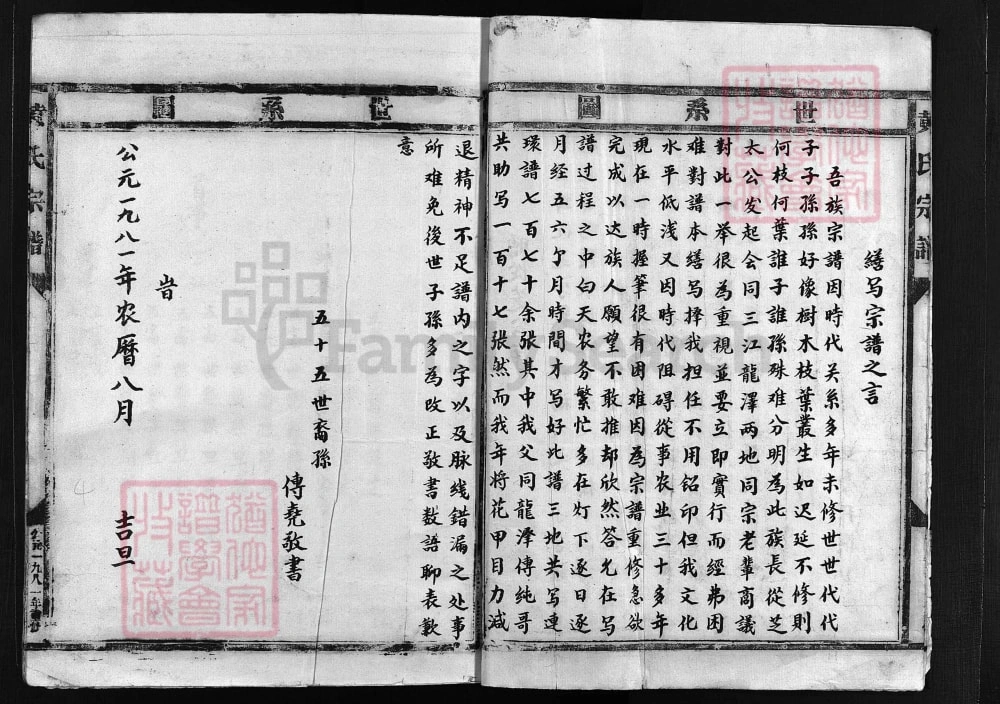 世系圖
黃氏宗譜
繕写宗譜之言
吾族宗譜因時代关系多年未修世世代代
子子孫孫好像樹木枝葉叢生如迟延不修則
何枝何葉誰子誰孫殊难分明為此族長從芝
太公发起会同三江龍澤两地同宗老輩商議
對此一举很為重視並要立即實行而經弗困
难對譜本繕写择我担任不用鉛印但我文化
水平低浅又因時代阻碍從事农业三十多年
現在一時握筆很有困难因為宗譜重修急欲
完成以达族人願望不敢推却欣然答允在写
譜过程之中白天农务繁忙多在灯下逐日逐
月经五六个月時間才写好此譜三地共写連
環譜七百七十余张其中我父同龍澤傳純哥
共助写一百十七張然而我年将花甲目力減
世系圖
退精神不足譜内之字以及脉线錯漏之处事
所难免後世子孫多為改正敬書数語聊表歉
意
五十五世裔孫
傳堯敬書
旹
公元一九八一年农曆八月
吉旦
黃氏宗譜
公元一九八一年
FamilySearch